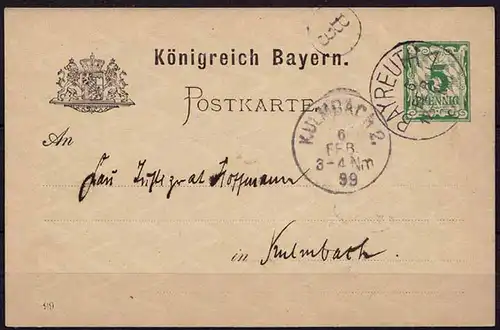 Königreich Bayern.
POSTKARTE
5
PFENNIG
BAYREUTH
KULMBACH 2.
6
FEB.
3-4 Nm
99
An
Frau Justizrat Hoffmann
in Kulmbach
99